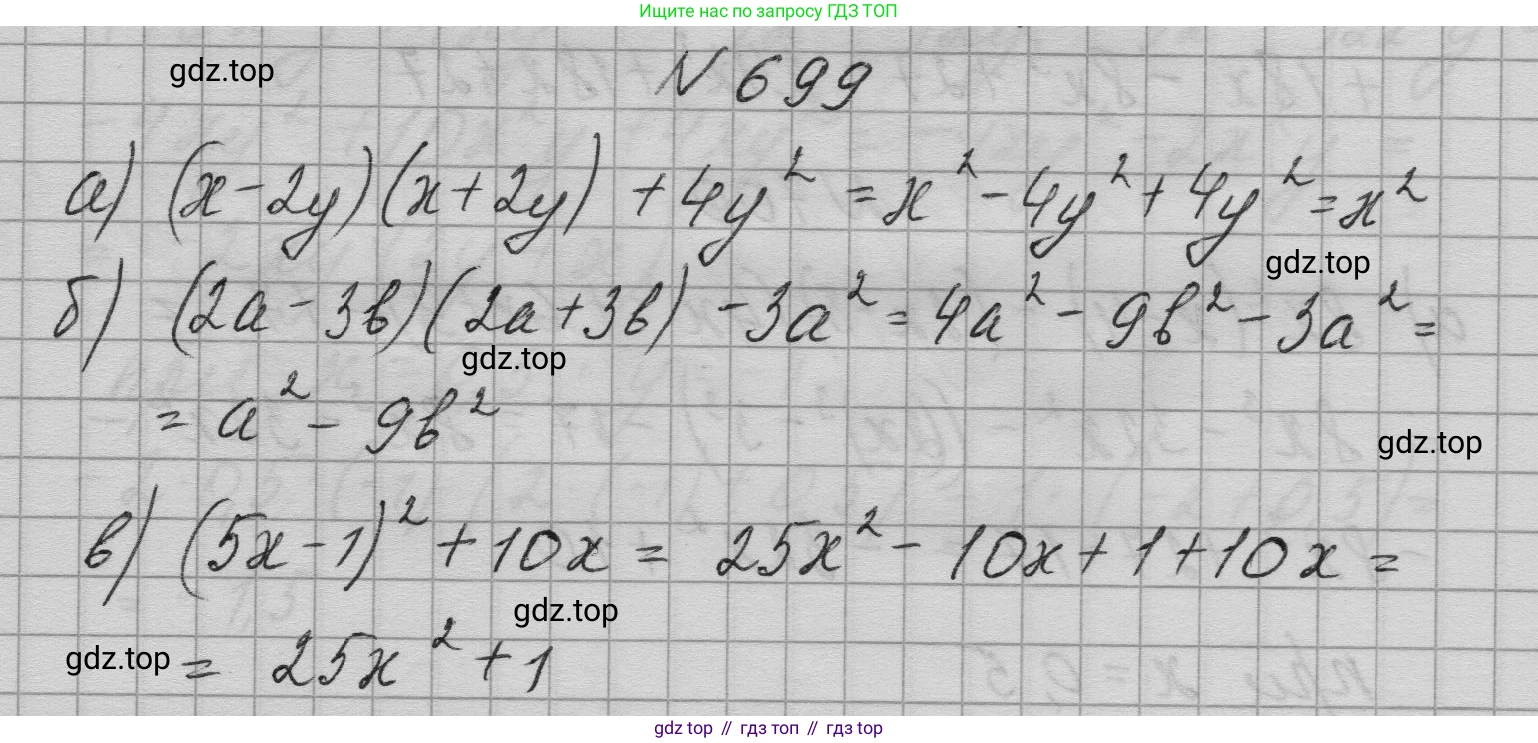 Ищите нас по запросу ГДЗ ТОП
gdz.top
N 699
а) (x-2y)(x+2y) + 4y² = x² - 4y² + 4y² = x²
gdz.top
б) (2a - 3b)(2a + 3b) - 3a² = 4a² - 9b² - 3a² =
gdz.top
= a² - 9b²
gdz.top
в) (5x-1)² + 10x = 25x² - 10x + 1 + 10x =
gdz.top
gdz.top
= 25x² + 1
gdz.top // гдз топ // gdz top